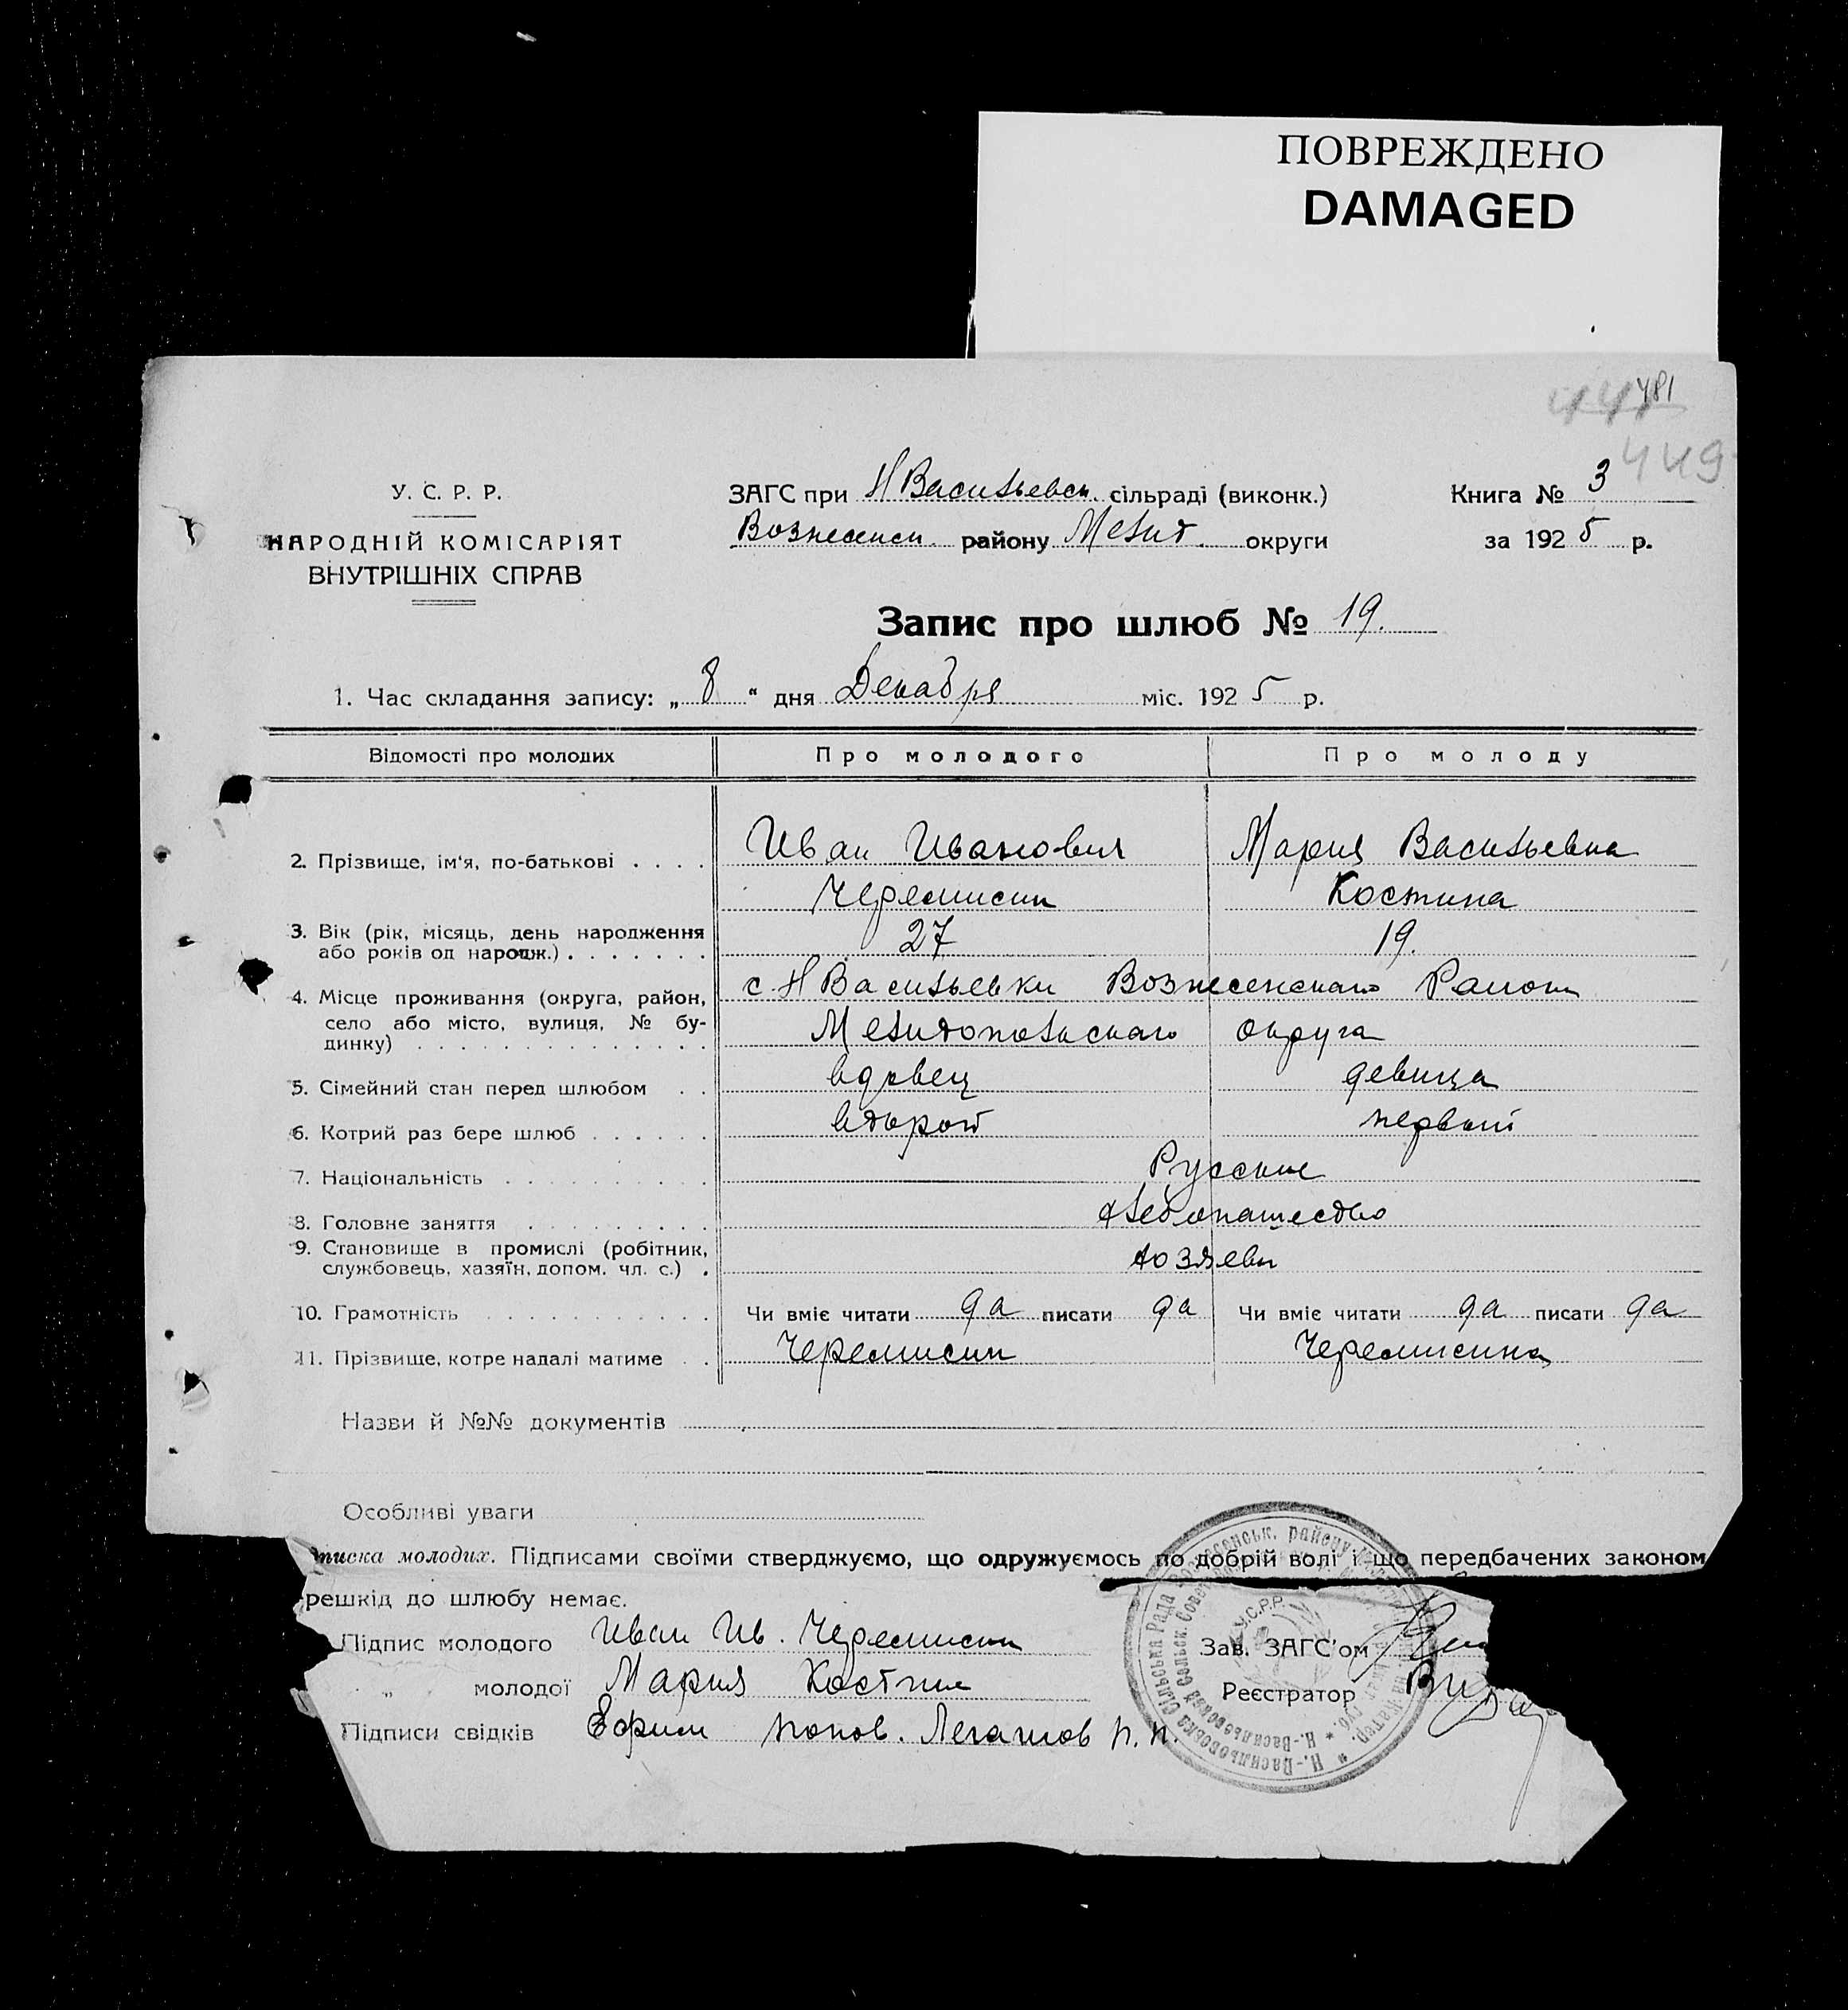 ПОВРЕЖДЕНО
DAMAGED
481
449
У. С. Р. Р.
НАРОДНІЙ КОМІСАРІЯТ
ВНУТРІШНІХ СПРАВ
ЗАГС при Н Васильевск. сільраді (виконк.)
Вознесенск. району Мелит. округи
Книга № 3
за 1925 р.
Запис про шлюб № 19.
1. Час складання запису: „ 8 “ дня Декабря міс. 1925 р.
Відомості про молодих
Про молодого
Про молоду
2. Прізвище, ім'я, по-батькові . . . .
Иван Иванович
Мария Васильевна
Черемисин
Костина
3. Вік (рік, місяць, день народження
або років од народж.) . . . . . . .
27
19.
4. Місце проживання (округа, район,
село або місто, вулиця, № бу-
динку) . . . . . . . . . . . . . .
с. Н Васильевки Вознесенскаго Района
Мелитопольскаго округа
5. Сімейний стан перед шлюбом . .
вдовец
девица
6. Котрий раз бере шлюб . . . . . .
второй
первый
7. Національність . . . . . . . . . .
Русские
8. Головне заняття . . . . . . . . .
хлебопашество
9. Становище в промислі (робітник,
службовець, хазяїн, допом. чл. с.) .
хозяева
10. Грамотність . . . . . . . . . . .
Чи вміє читати да писати да
Чи вміє читати да писати да
11. Прізвище, котре надалі матиме . .
Черемисин
Черемисина
Назви й №№ документів
Особливі уваги
писка молодих. Підписами своїми стверджуємо, що одружуємось по добрій волі і що передбачених законом
решкід до шлюбу немає.
Підпис молодого Иван Ив. Черемисин
„ молодої Мария Костина
Підписи свідків Ефим Попов. Легашов П. П.
Зав. ЗАГС'ом
Реєстратор
У.С.Р.Р.
Н.-Васильовська Сільська Рада Вознесенськ. району